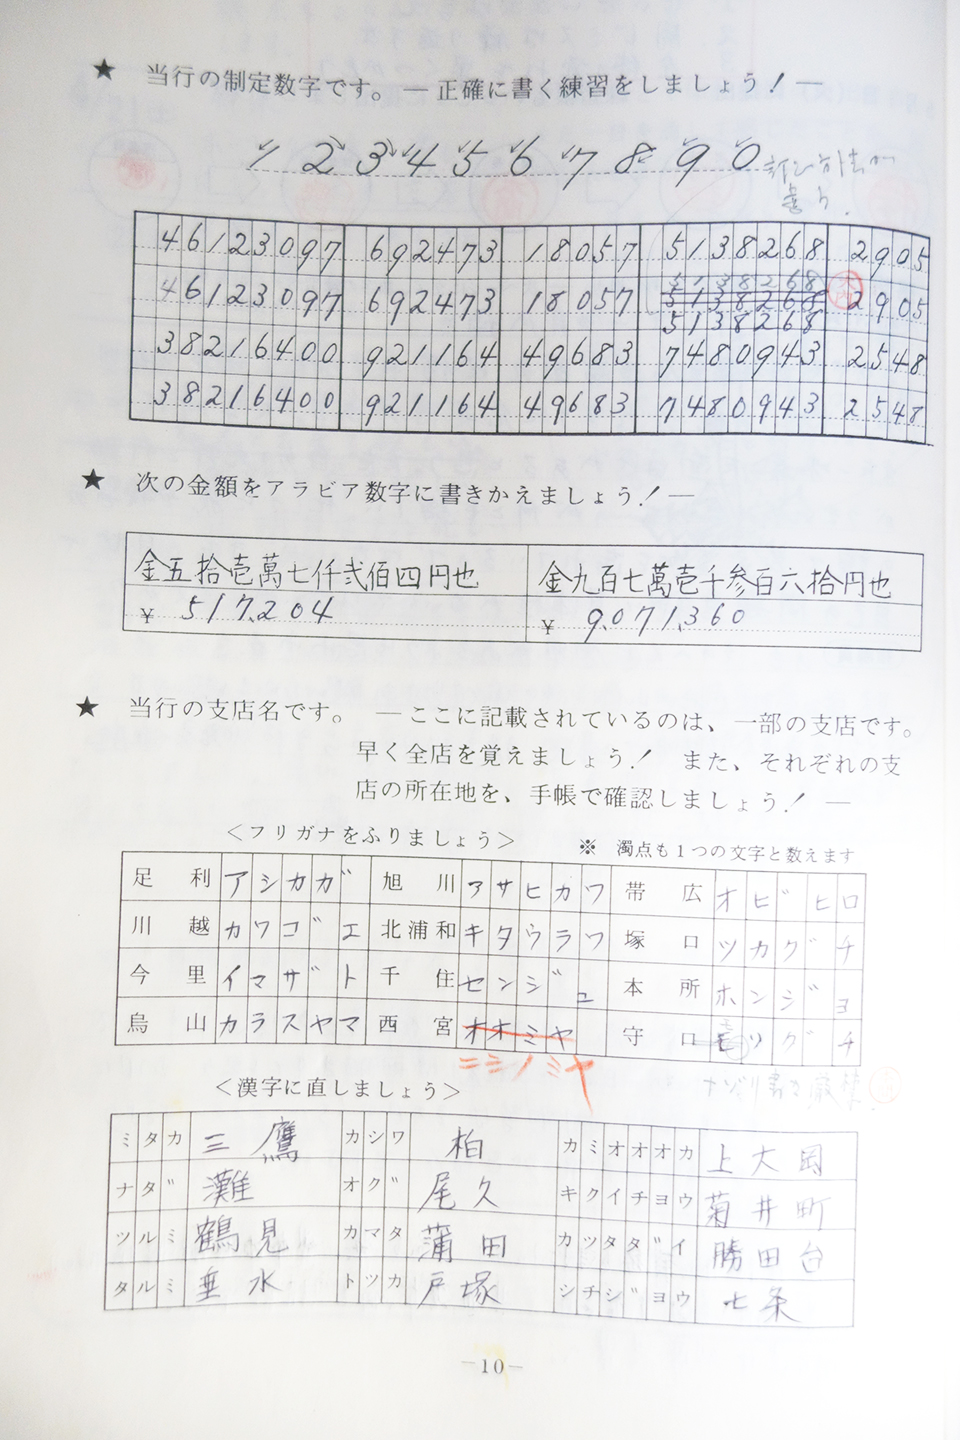 ★ 当行の制定数字です。 ― 正確に書く練習をしましょう！―
1 2 3 4 5 6 7 8 9 0
46123097 692473 18057 5138268 2905
5138268
46123097 692473 18057 5138268 2905
5138268
38216400 921164 49683 7480943 2548
38216400 921164 49683 7480943 2548
★ 次の金額をアラビア数字に書きかえましょう！―
金五拾壱萬七仟弐佰四円也 金九百七萬壱千参百六拾円也
¥ 517,204 ¥ 9,071,360
★ 当行の支店名です。 ―ここに記載されているのは、一部の支店です。
早く全店を覚えましょう！ また、それぞれの支
店の所在地を、手帳で確認しましょう！ ―
＜フリガナをふりましょう＞ ※ 濁点も1つの文字と数えます
足利 アシカガ 旭川 アサヒカワ 帯広 オビ゛ヒロ
川越 カワコ゛エ 北浦和 キタウラワ 塚口 ツカグ゛チ
今里 イマザ゛ト 千住 センジ゛ュ 本所 ホンジ゛ョ
烏山 カラスヤマ 西宮 オオミヤ 守口 モリグ゛チ
ニシノミヤ
＜漢字に直しましょう＞
ミタカ 三鷹 カシワ 柏 カミオオオカ 上大岡
ナダ゛ 灘 オグ゛ 尾久 キクイチョウ 菊井町
ツルミ 鶴見 カマタ 蒲田 カツタダ゛イ 勝田台
タルミ 垂水 トツカ 戸塚 シチシ゛ョウ 七条
－10－